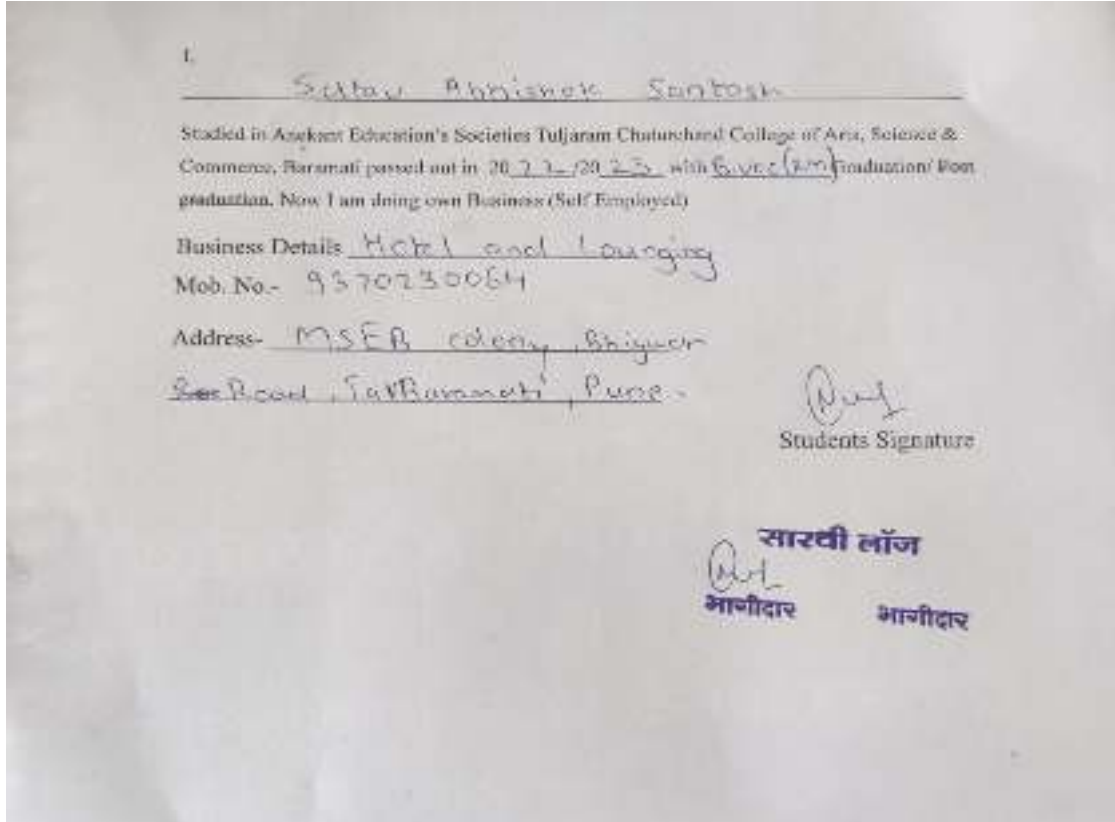 I,
Abhishek Santosh
Studied in Anekant Education's Societies Tuljaram Chaturchand College of Arts, Science &
Commerce, Baramati passed out in 2022/2023 with Graduation/ Post
graduation. Now I am doing own Business (Self Employed)
Business Details Hotel and Lounging
Mob. No.- 9370230064
Address- MSEB colony, Bhigwan
Road, Tal Baramati, Pune.
Students Signature
सारथी लॉज
भागीदार भागीदार